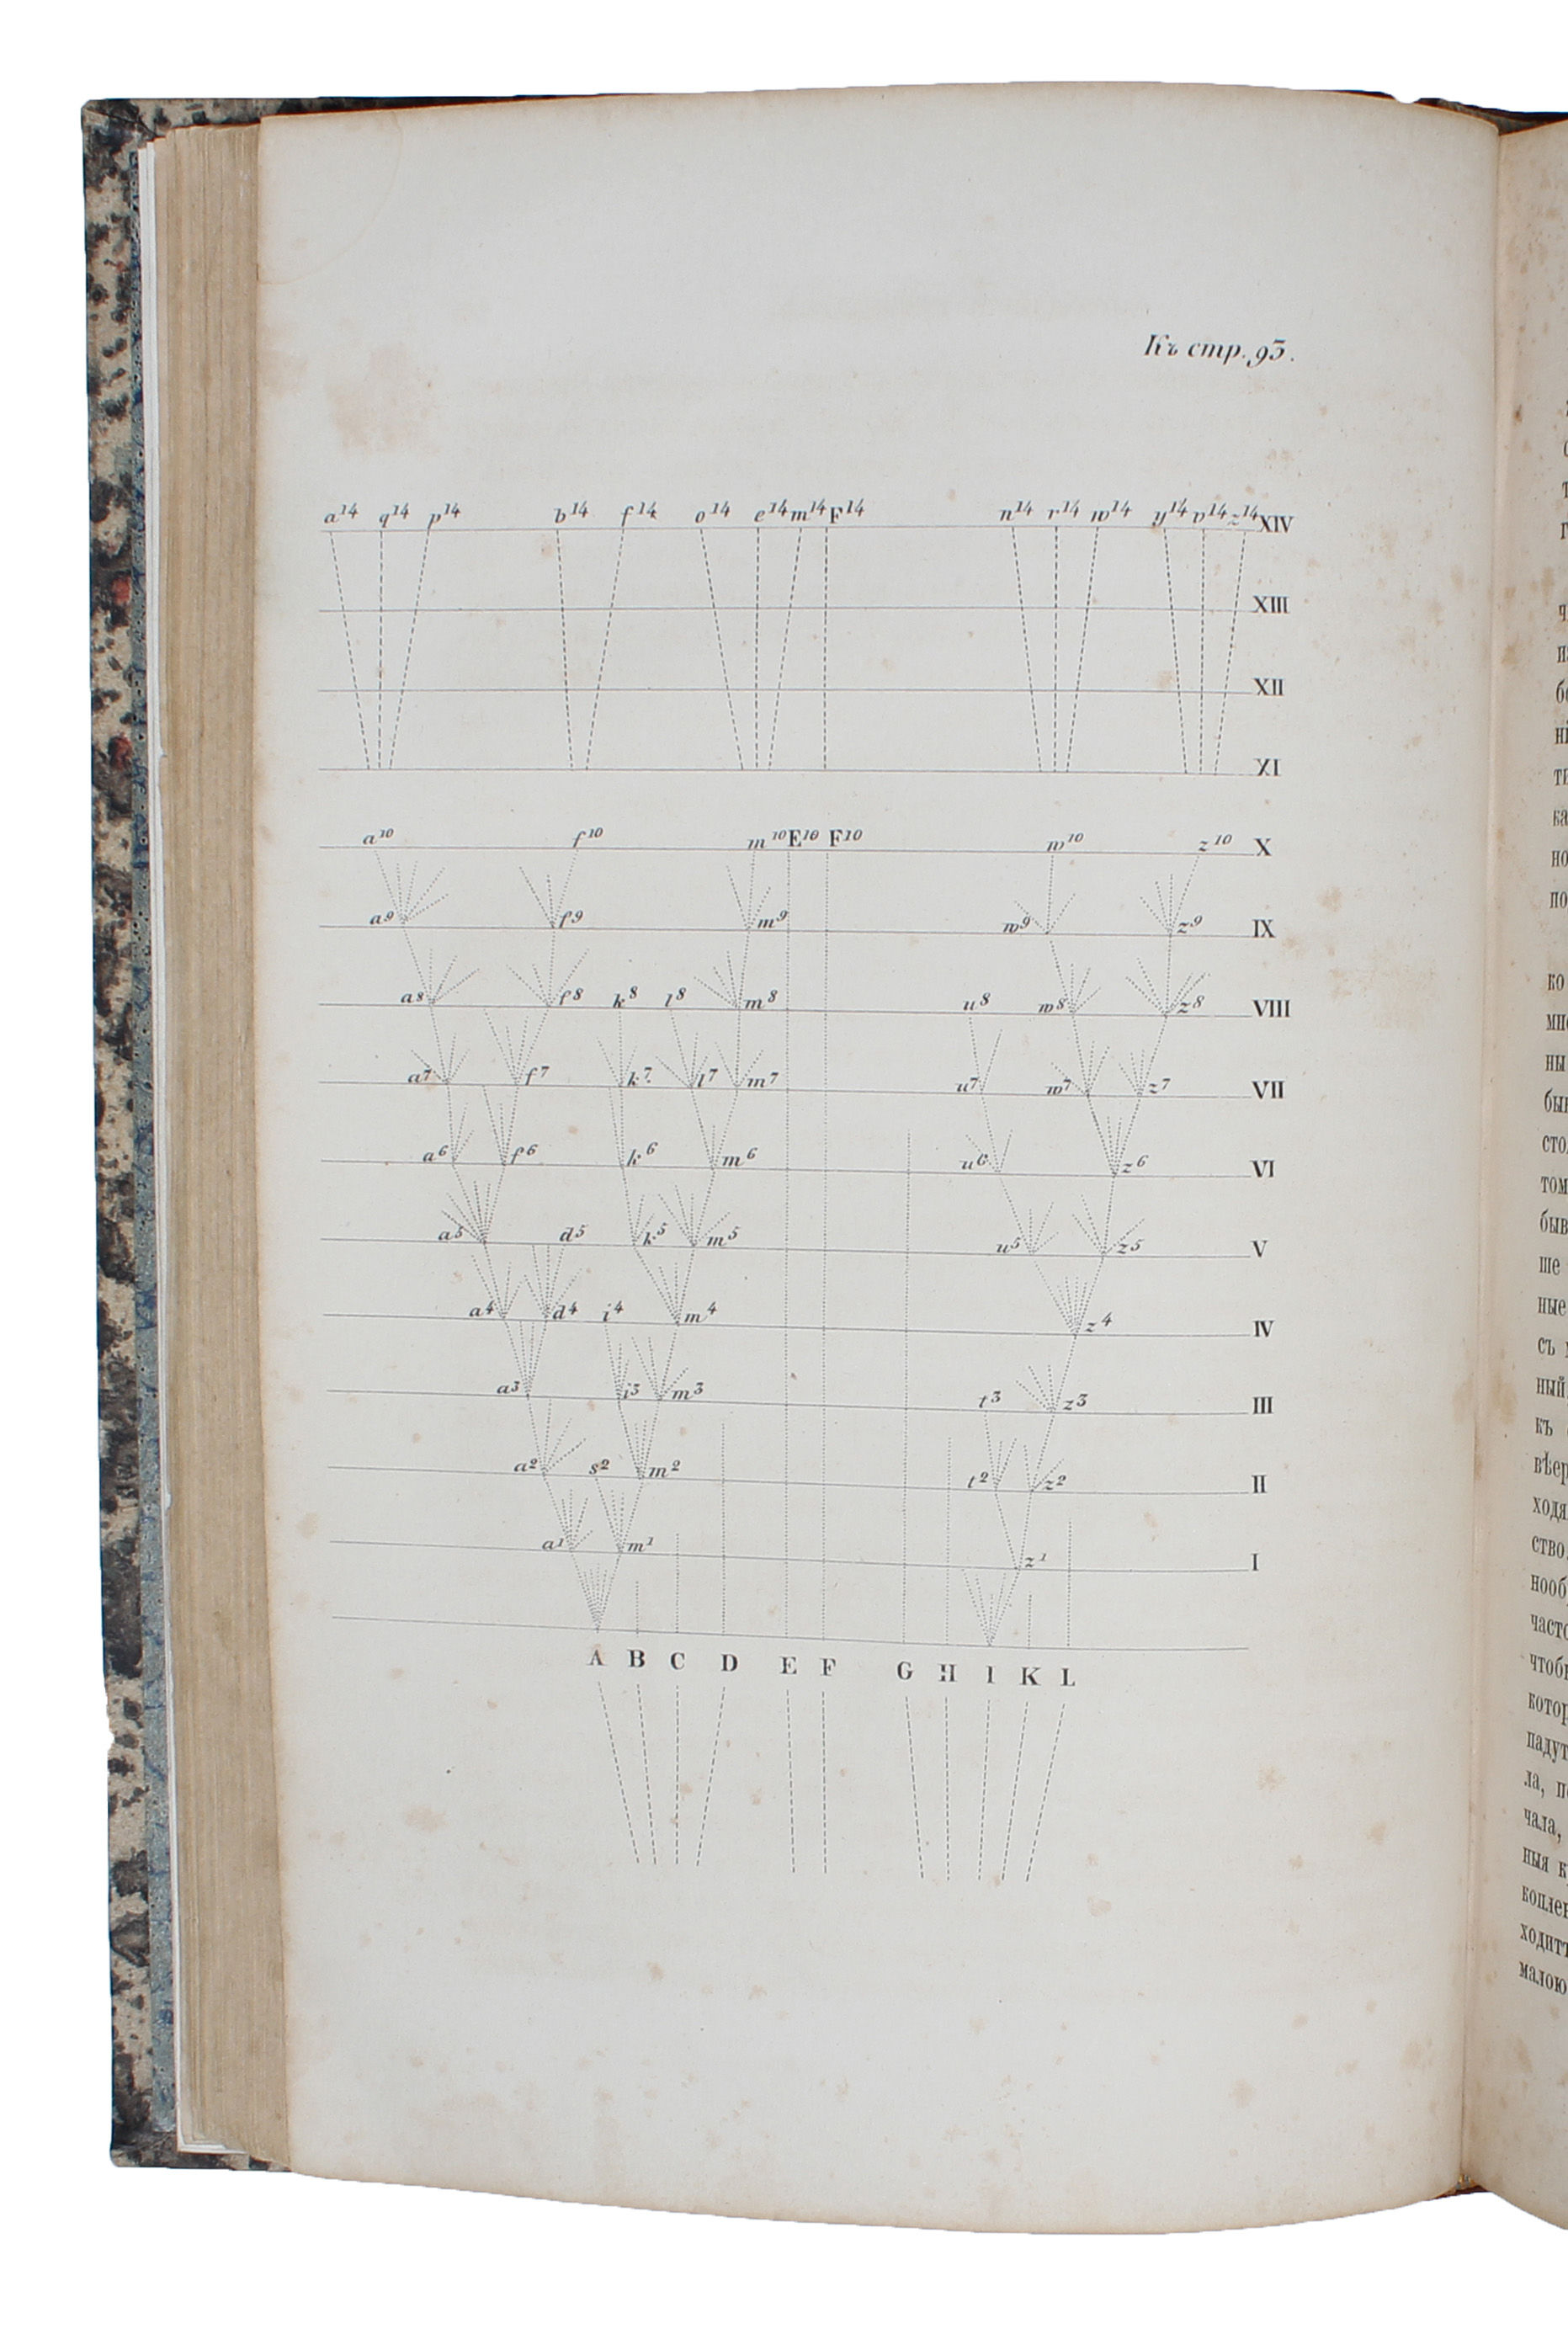 Къ стр. 93.
a14 q14 p14 b14 f14 o14 e14 m14 F14 n14 r14 w14 y14 v14 z14 XIV
XIII
XII
XI
a10 f10 m10 E10 F10 w10 z10 X
a9 f9 m9 w9 z9 IX
a8 f8 k8 l8 m8 u8 w8 z8 VIII
a7 f7 k7 l7 m7 u7 w7 z7 VII
a6 f6 k6 m6 u6 z6 VI
a5 d5 k5 m5 u5 z5 V
a4 d4 i4 m4 z4 IV
a3 i3 m3 t3 z3 III
a2 s2 m2 t2 z2 II
a1 m1 z1 I
A B C D E F G H I K L
ко
ны
сто
том
ше
ные
съ
ный
къ
ство
часто
чтобы
падут
чала,
малою